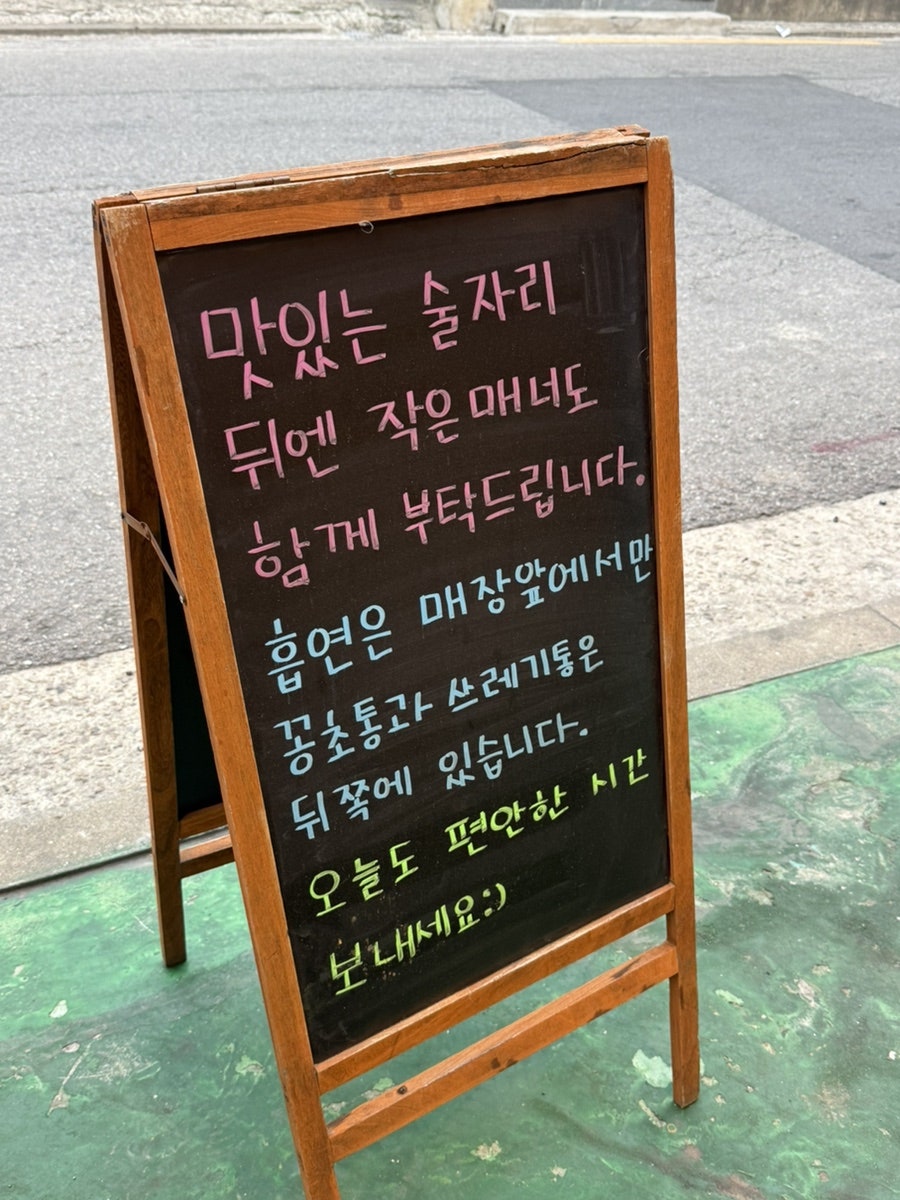 맛있는 술자리
뒤엔 작은 매너도
함께 부탁드립니다.
흡연은 매장앞에서만
꽁초통과 쓰레기통은
뒤쪽에 있습니다.
오늘도 편안한 시간
보내세요:)